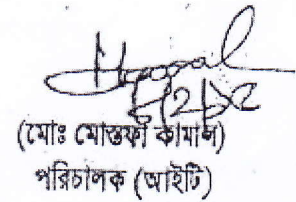 (মোঃ মোস্তফা কামাল)
পরিচালক (আইটি)